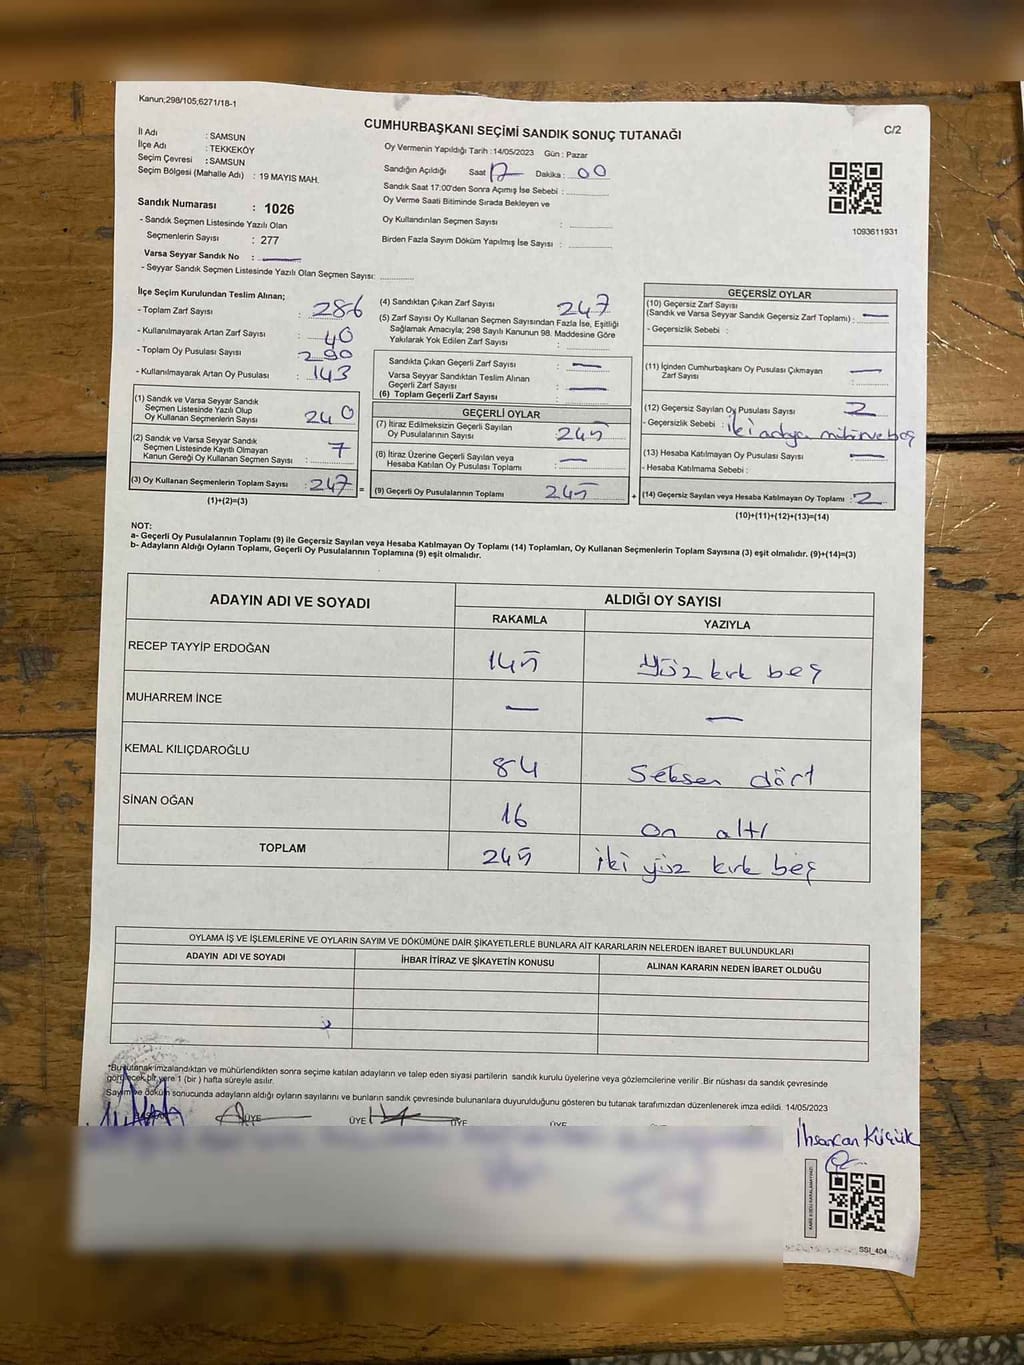 Kanun;298/105;6271/18-1
CUMHURBAŞKANI SEÇİMİ SANDIK SONUÇ TUTANAĞI
C/2
İl Adı : SAMSUN
İlçe Adı : TEKKEKÖY
Seçim Çevresi : SAMSUN
Seçim Bölgesi (Mahalle Adı) : 19 MAYIS MAH.
Sandık Numarası : 1026
- Sandık Seçmen Listesinde Yazılı Olan
Seçmenlerin Sayısı : 277
Varsa Seyyar Sandık No : —
- Seyyar Sandık Seçmen Listesinde Yazılı Olan Seçmen Sayısı:
Oy Vermenin Yapıldığı Tarih : 14/05/2023 Gün : Pazar
Sandığın Açıldığı Saat 17 Dakika : 00
Sandık Saat 17:00'den Sonra Açımış İse Sebebi :
Oy Verme Saati Bitiminde Sırada Bekleyen ve
Oy Kullandırılan Seçmen Sayısı :
Birden Fazla Sayım Döküm Yapılmış İse Sayısı :
1093611931
İlçe Seçim Kurulundan Teslim Alınan;
- Toplam Zarf Sayısı : 286
- Kullanılmayarak Artan Zarf Sayısı : 40
- Toplam Oy Pusulası Sayısı : 290
- Kullanılmayarak Artan Oy Pusulası : 143
(1) Sandık ve Varsa Seyyar Sandık
Seçmen Listesinde Yazılı Olup
Oy Kullanan Seçmenlerin Sayısı : 240
(2) Sandık ve Varsa Seyyar Sandık
Seçmen Listesinde Kayıtlı Olmayan
Kanun Gereği Oy Kullanan Seçmen Sayısı : 7
(3) Oy Kullanan Seçmenlerin Toplam Sayısı : 247 =
(1)+(2)=(3)
(4) Sandıktan Çıkan Zarf Sayısı 247
(5) Zarf Sayısı Oy Kullanan Seçmen Sayısından Fazla İse, Eşitliği
Sağlamak Amacıyla; 298 Sayılı Kanunun 98. Maddesine Göre
Yakılarak Yok Edilen Zarf Sayısı :
Sandıkta Çıkan Geçerli Zarf Sayısı : —
Varsa Seyyar Sandıktan Teslim Alınan
Geçerli Zarf Sayısı : —
(6) Toplam Geçerli Zarf Sayısı
GEÇERLİ OYLAR
(7) İtiraz Edilmeksizin Geçerli Sayılan
Oy Pusulalarının Sayısı : 245
(8) İtiraz Üzerine Geçerli Sayılan veya
Hesaba Katılan Oy Pusulası Toplamı : —
(9) Geçerli Oy Pusulalarının Toplamı 245 +
GEÇERSİZ OYLAR
(10) Geçersiz Zarf Sayısı
(Sandık ve Varsa Seyyar Sandık Geçersiz Zarf Toplamı) : —
- Geçersizlik Sebebi :
(11) İçinden Cumhurbaşkanı Oy Pusulası Çıkmayan
Zarf Sayısı : —
(12) Geçersiz Sayılan Oy Pusulası Sayısı : 2
- Geçersizlik Sebebi : iki adaya mühür ve boş
(13) Hesaba Katılmayan Oy Pusulası Sayısı : —
- Hesaba Katılmama Sebebi :
(14) Geçersiz Sayılan veya Hesaba Katılmayan Oy Toplamı : 2
(10)+(11)+(12)+(13)=(14)
NOT:
a- Geçerli Oy Pusulalarının Toplamı (9) ile Geçersiz Sayılan veya Hesaba Katılmayan Oy Toplamı (14) Toplamları, Oy Kullanan Seçmenlerin Toplam Sayısına (3) eşit olmalıdır. (9)+(14)=(3)
b- Adayların Aldığı Oyların Toplamı, Geçerli Oy Pusulalarının Toplamına (9) eşit olmalıdır.
ADAYIN ADI VE SOYADI
ALDIĞI OY SAYISI
RAKAMLA YAZIYLA
RECEP TAYYİP ERDOĞAN 145 Yüz kırk beş
MUHARREM İNCE — —
KEMAL KILIÇDAROĞLU 84 Seksen dört
SİNAN OĞAN 16 on altı
TOPLAM 245 iki yüz kırk beş
OYLAMA İŞ VE İŞLEMLERİNE VE OYLARIN SAYIM VE DÖKÜMÜNE DAİR ŞİKAYETLERLE BUNLARA AİT KARARLARIN NELERDEN İBARET BULUNDUKLARI
ADAYIN ADI VE SOYADI İHBAR İTİRAZ VE ŞİKAYETİN KONUSU ALINAN KARARIN NEDEN İBARET OLDUĞU
*Bu tutanak imzalandıktan ve mühürlendikten sonra seçime katılan adayların ve talep eden siyasi partilerin sandık kurulu üyelerine veya gözlemcilerine verilir .Bir nüshası da sandık çevresinde
görülecek bir yere 1 (bir ) hafta süreyle asılır.
Sayım ve döküm sonucunda adayların aldığı oyların sayılarını ve bunların sandık çevresinde bulunanlara duyurulduğunu gösteren bu tutanak tarafımızdan düzenlenerek imza edildi. 14/05/2023
ÜYE ÜYE ÜYE ÜYE
İhsancan Küçük
SSI_404